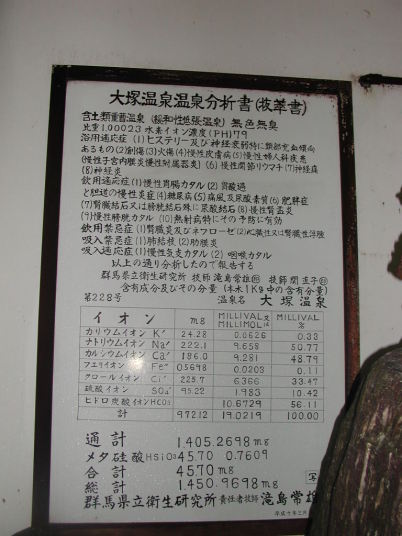 大塚温泉温泉分析書(抜萃書)
含土類重曹温泉 (緩和性低張温泉) 無色無臭
比重1.00023 水素イオン濃度(PH)7.9
浴用適応症(1)ヒステリー及び神経衰弱特に鎖部充血傾向
あるもの(2)創傷(3)火傷(4)慢性皮膚病(5)慢性婦人科疾患
(慢性子宮内膜炎慢性附属器炎)(6)慢性関節リウマチ(7)神経痛
(8)神経炎
飲用適応症(1)慢性胃腸カタル(2)胃酸過
と胆道の慢性炎症(4)糖尿病(5)痛風及尿酸素質(6)肥胖症
(7)腎臓結石又は膀胱結石殊に尿酸結石(8)慢性腎盂炎
(9)慢性膀胱カタル(10)熱射病特にその予防に有効
飲用禁忌症(1)腎臓炎及びネフローゼ(2)心臓性又は腎臓性浮腫
吸入禁忌症(1)肺結核(2)肋膜炎
吸入適応症(1)慢性気支カタル(2)咽喉カタル
以上の通り分析したので報告する
群馬県立衛生研究所 技師 滝島常雄 技師 関 直子
含有成分及びその分量(本水1KG中の含有分量)
第228号 温泉名 大塚温泉
イオン mg MILLIVAL又MILLIMOL MILLIVAL%
カリウムイオンK 24.28 0.0626 0.33
ナトリウムイオンNa 222.1 9.658 50.77
カルシウムイオンCa 186.0 9.281 48.79
フエリイオンFe 0.5698 0.0203 0.11
クロールイオンCl 225.7 6.366 33.47
硫酸イオンSO₄ 95.22 1.983 10.42
ヒドロ炭酸イオンHCO₃ 10.6729 56.11
計 972.12 19.0219 100.00
通計 1.405.2698mg
メタ硅酸HSiO₃45.70 0.7609
合計 45.70mg
総計 1.450.9698mg 写
群馬県立衛生研究所 責任者技師 滝島常雄